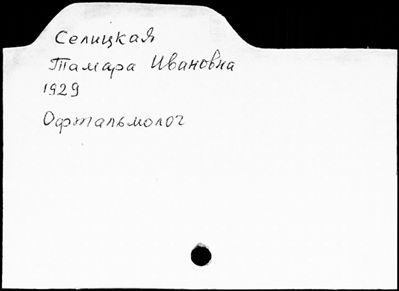 Селицкая
Тамара Ивановна
1929
Офтальмолог